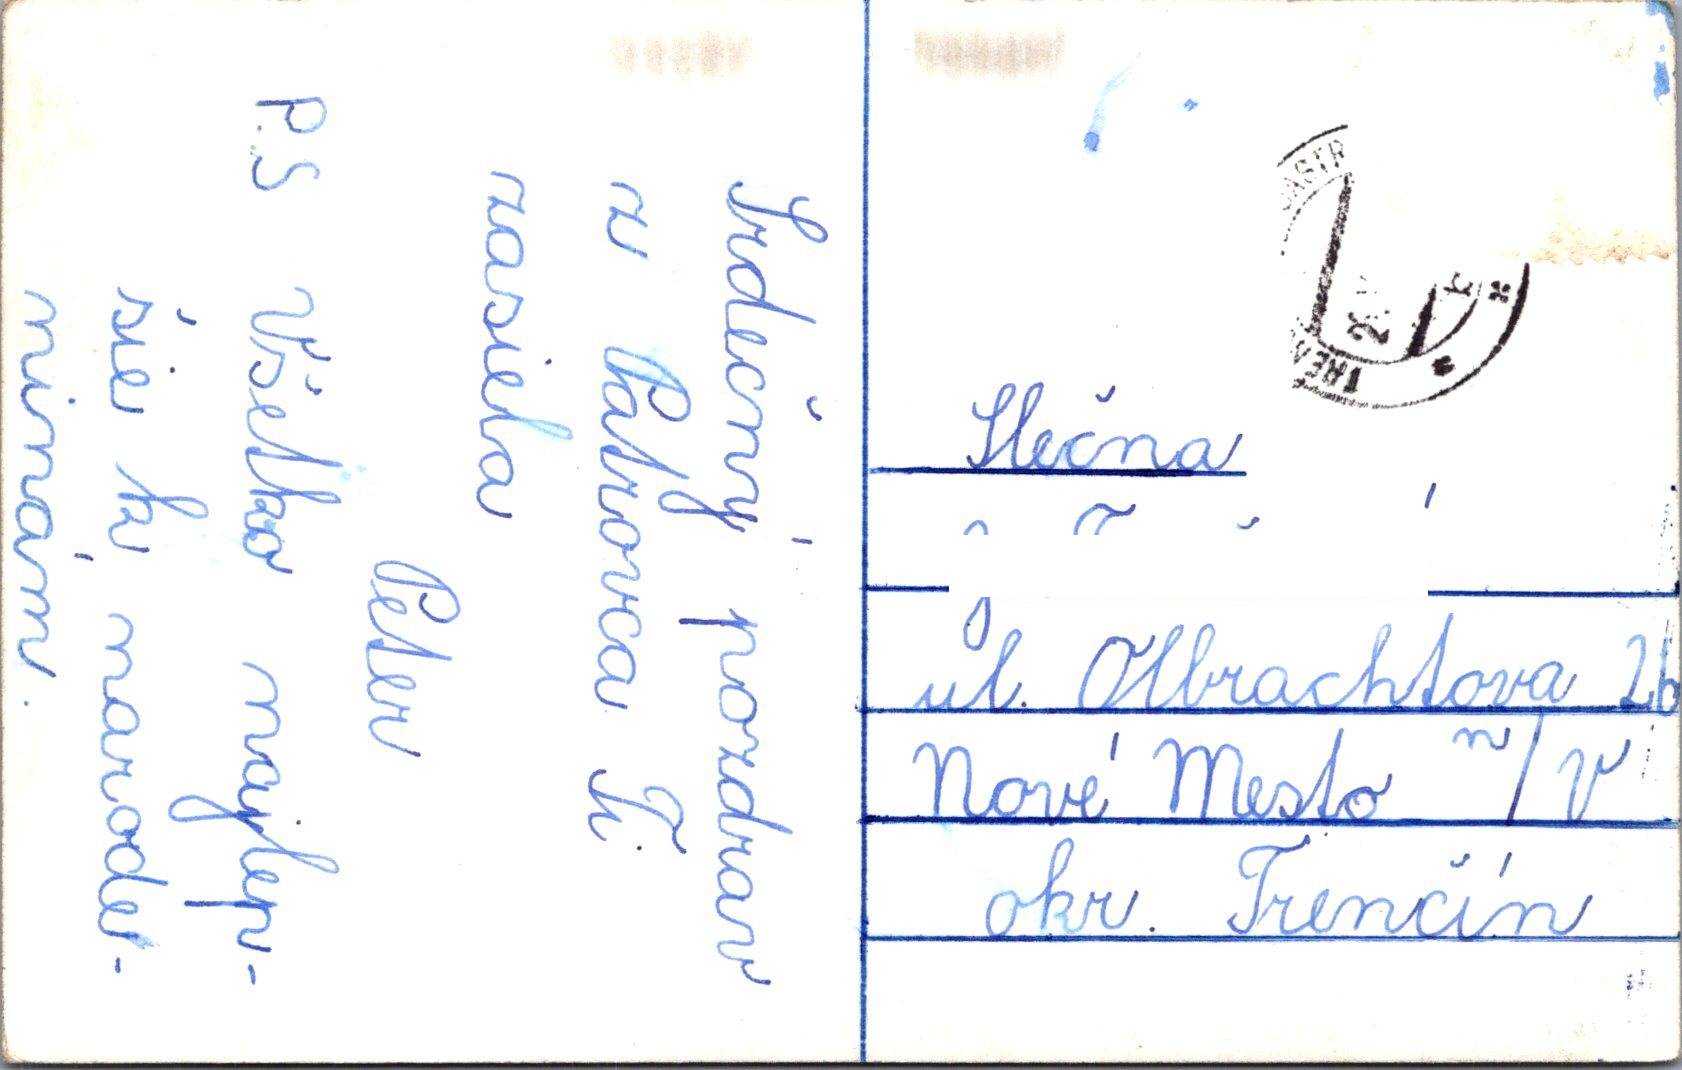 Srdečný pozdrav
z Patrovca Ti
zasiela
Peter
P.S Všetko najlep-
šie k marode-
minám.
Slečna
ul. Olbrachtova 26
Nové Mesto n/V
okr. Trenčín